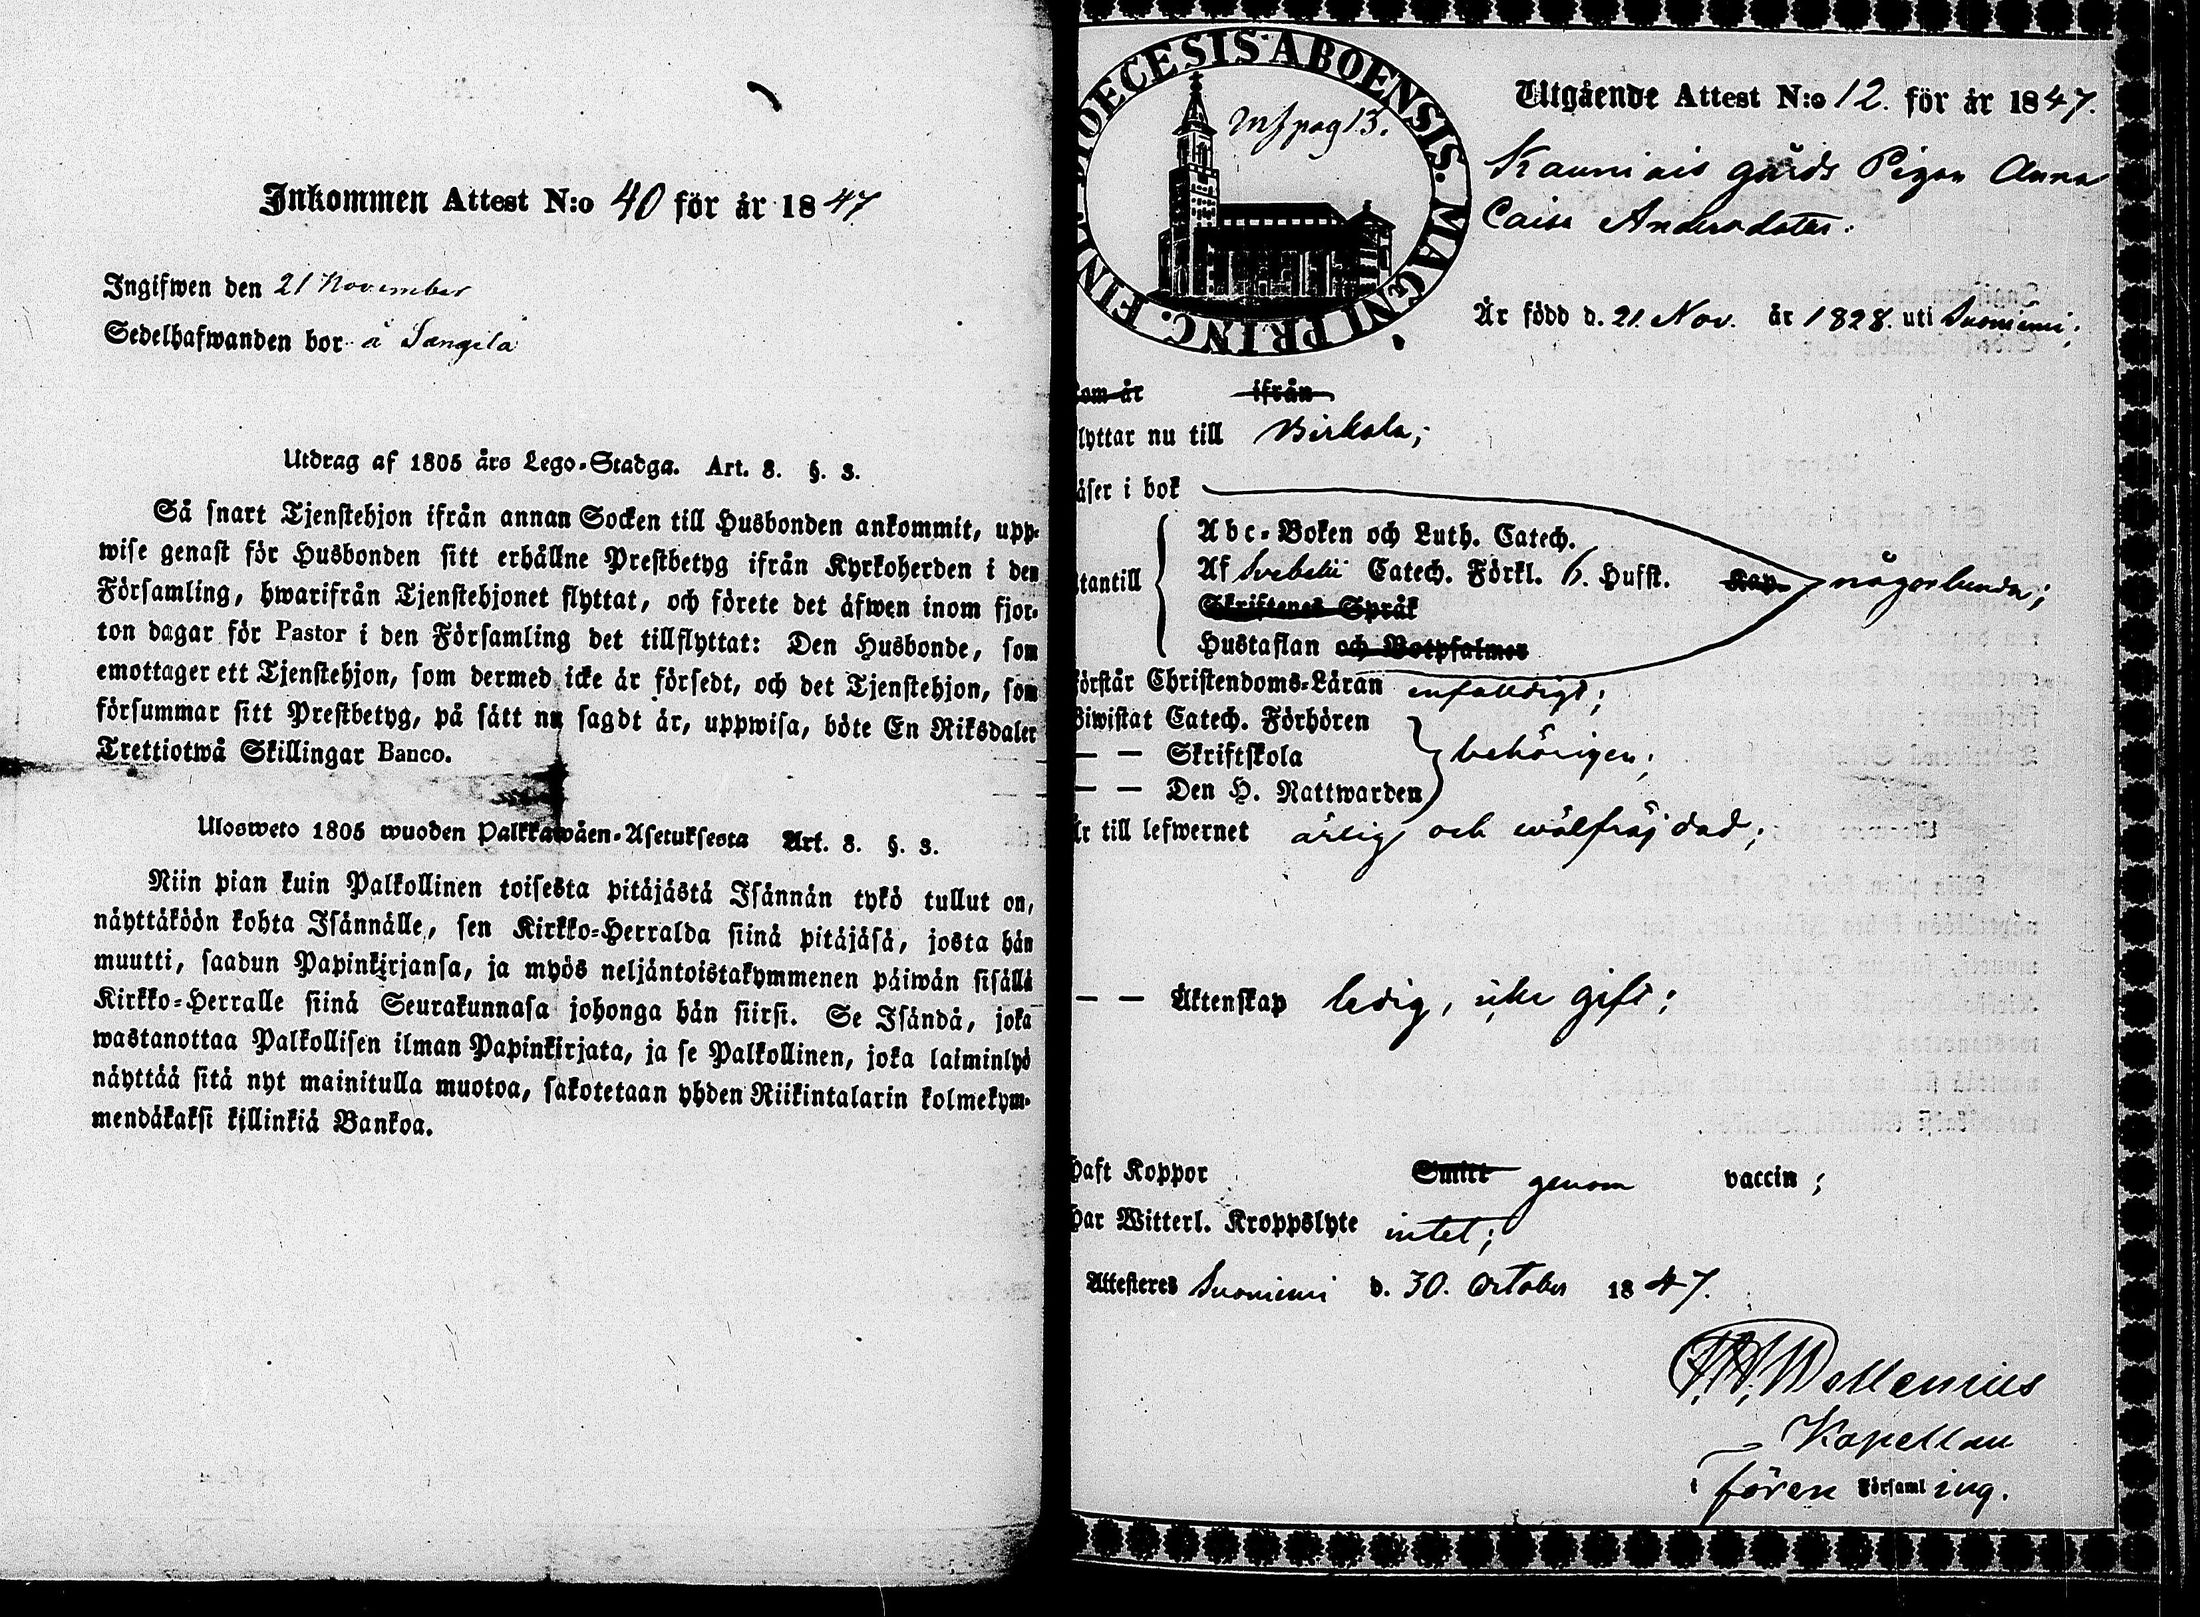 Inkommen Attest N:o 40 för år 1847
Ingifwen den 21 November
Sedelhafwanden bor å Sangila
Utdrag af 1805 års Lego-Stadga. Art. 8. §. 3.
Så snart Tjenstehjon ifrån annan Socken till Husbonden ankommit, upp-
wise genast för Husbonden sitt erhållne Prestbetyg ifrån Kyrkoherden i den
Församling, hwarifrån Tjenstehjonet flyttat, och förete det äfwen inom fjor-
ton dagar för Pastor i den Församling det tillflyttat: Den Husbonde, som
emottager ett Tjenstehjon, som dermed icke är försedt, och det Tjenstehjon, som
försummar sitt Prestbetyg, på sätt nu sagdt är, uppwisa, böte En Riksdaler
Trettiotwå Skillingar Banco.
Ulosweto 1805 wuoden Palkkawäen-Asetuksesta Art. 8. §. 3.
Niin pian kuin Palkollinen toisesta pitäjästä Isännän tykö tullut on,
näyttäköön kohta Isännälle, sen Kirkko-Herralda siinä pitäjäsä, josta hän
muutti, saadun Papinkirjansa, ja myös neljäntoistakymmenen päiwän sisällä
Kirkko-Herralle siinä Seurakunnasa johonga hän siirsi. Se Isändä, joka
wastanottaa Palkollisen ilman Papinkirjata, ja se Palkollinen, joka laiminlyö
näyttää sitä nyt mainitulla muotoa, sakotetaan yhden Riikintalarin kolmekym-
mendäkaksi killinkiä Bankoa.
DIOECESIS ABOENSIS. MAGNI PRINC. FINL.
Infpag 13.
Utgående Attest N:o 12. för år 1847.
Kauniais gårds Pigan Anna
Caisa Andersdotter.
Är född d. 21. Nov. år 1828. uti Suoniemi;
kom år ifrån
flyttar nu till Birkala;
läser i bok
utantill
Abc-Boken och Luth. Catech.
Af Svebelii Catech. Förkl. 6. Hufst. Kap. någorlunda;
Skriftenes Språk
Hustaflan och Botpsalmer
Förstår Christendoms-Läran enfaldigt;
Biwistat Catech. Förhören
— — Skriftskola behörigen;
— — Den H. Nattwarden
Är till lefwernet ärlig och wälfräjdad;
— — Äktenskap ledig, icke gift;
Haft Koppor Smitt genom vaccin;
Har Witterl. Kroppslyte intet;
Attesteres Suoniemi d. 30. October 1847.
Wallenius
Kapellan
i fören Församling.